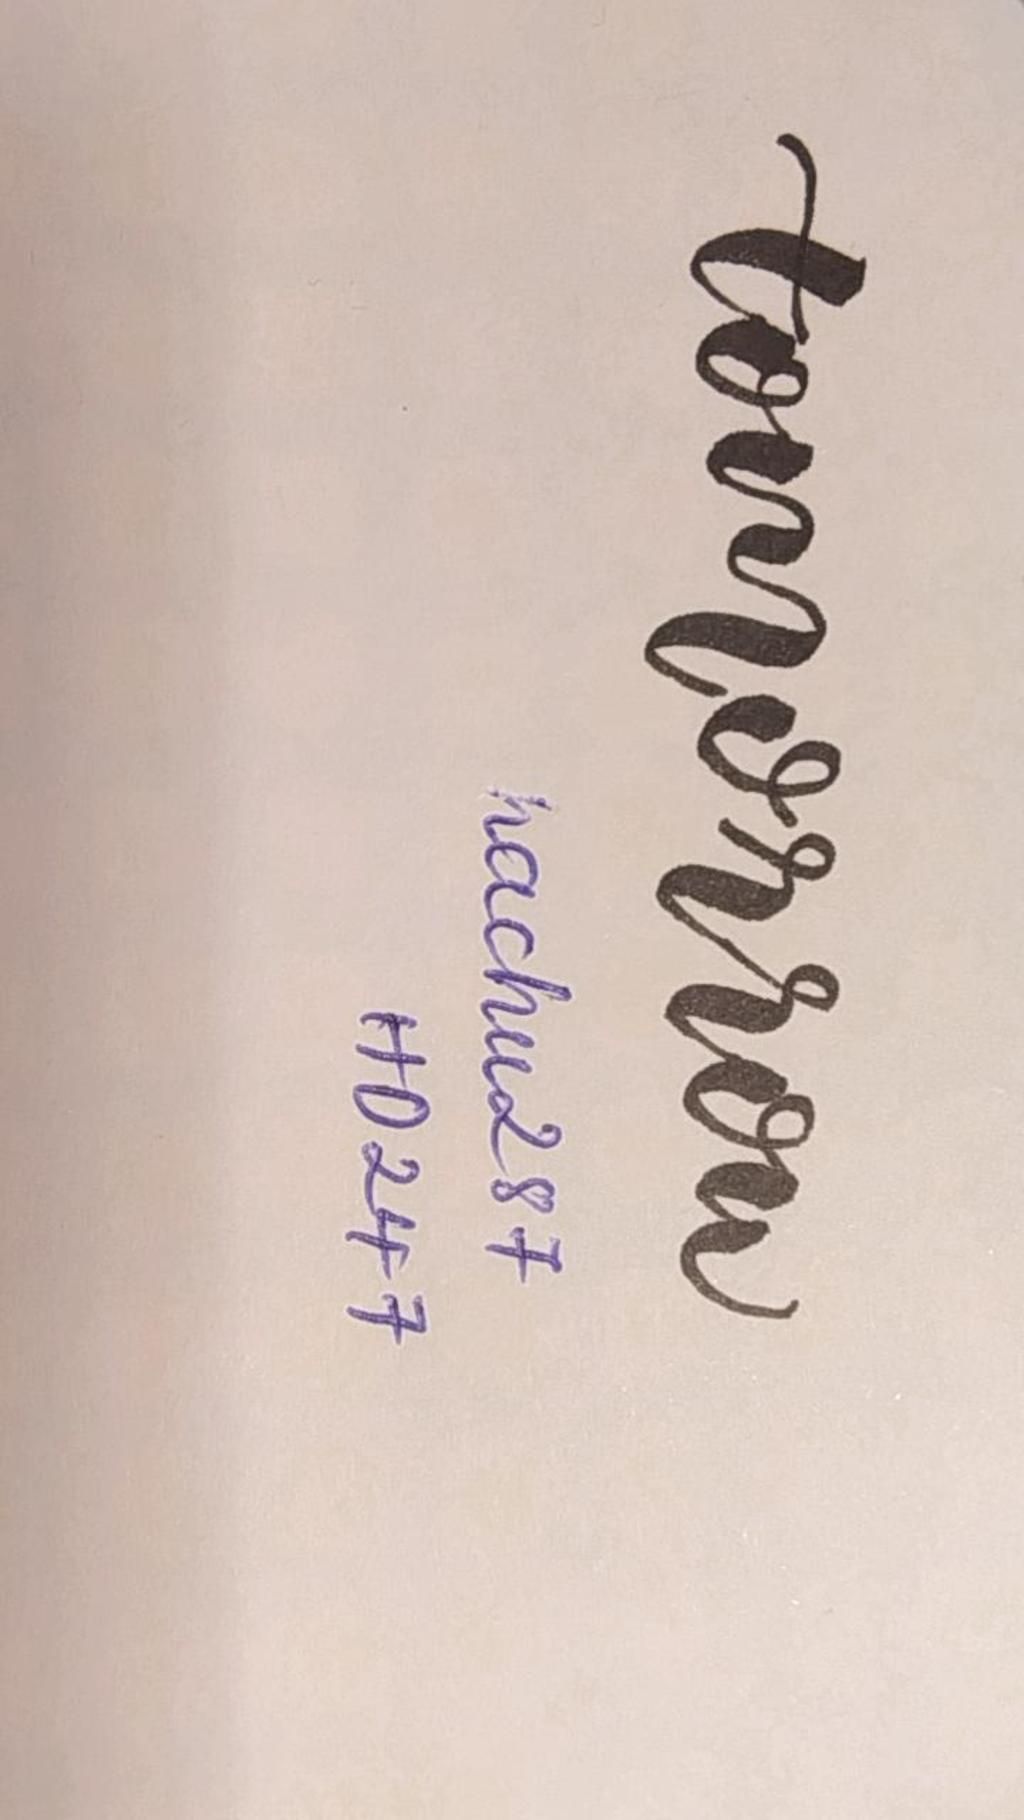 tomorrow
hachu287
HD247